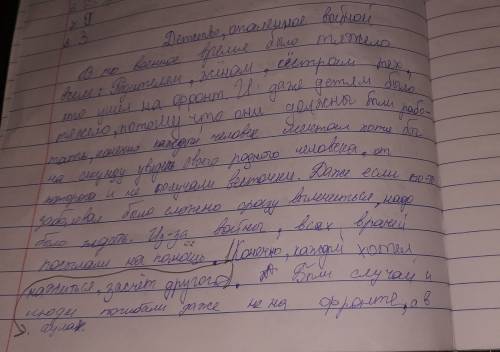 2. Я
3. З
Детство, опаленное войной
В то военное время было тяжело
всем: Родителям, жёнам, сёстрам тех,
кто ушёл на фронт. И даже детям было
тяжело, потому что они должны были рабо-
тать, конечно каждый человек мечтал хотя бы
на секунду увидеть своего родного человека, от
которого и не получали весточки. Даже если кто-то
заболевал было сложно сразу вылечиться, надо
было ждать. Из-за войны, всех врачей
посылали на помощь. Конечно, каждый хотел
нажиться, засчёт другого. Были случаи и
люди погибали даже не на фронте, а в